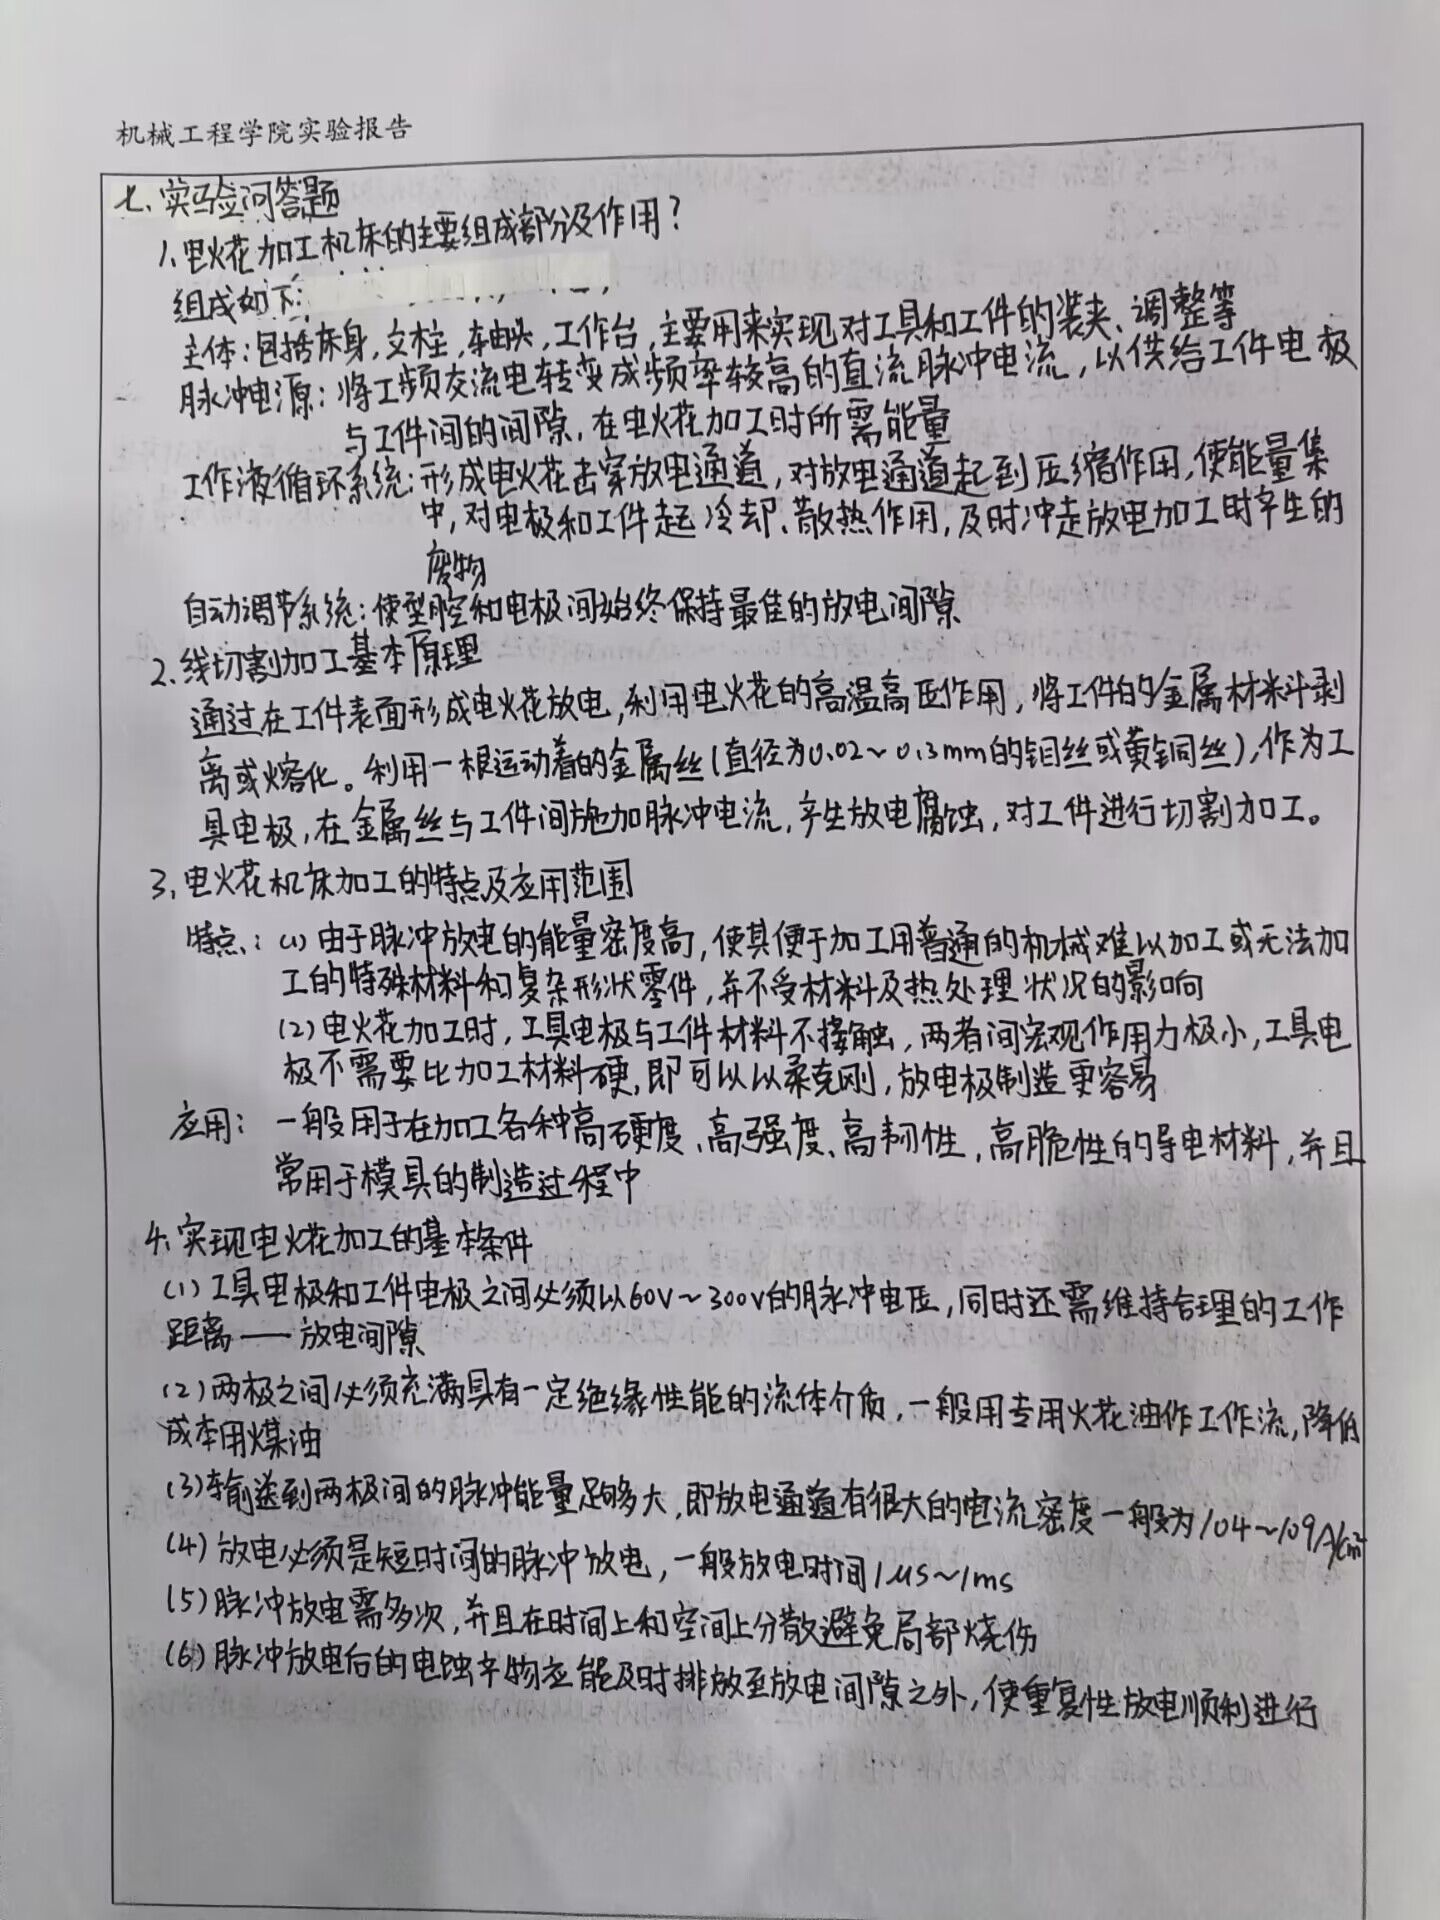 机械工程学院实验报告
七、实验问答题
1、电火花加工机床的主要组成部分及作用？
组成如下：
主体：包括床身，立柱，轴头，工作台，主要用来实现对工具和工件的装夹、调整等
脉冲电源：将工频交流电转变成频率较高的直流脉冲电流，以供给工件电极
与工件间的间隙，在电火花加工时所需能量
工作液循环系统：形成电火花击穿放电通道，对放电通道起到压缩作用，使能量集
中，对电极和工件起冷却、散热作用，及时冲走放电加工时产生的
废物
自动调节系统：使型腔和电极间始终保持最佳的放电间隙
2、线切割加工基本原理
通过在工件表面形成电火花放电，利用电火花的高温高压作用，将工件的金属材料剥
离或熔化。利用一根运动着的金属丝（直径为0.02～0.3mm的钼丝或黄铜丝），作为工
具电极，在金属丝与工件间施加脉冲电流，产生放电腐蚀，对工件进行切割加工。
3、电火花机床加工的特点及应用范围
特点：（1）由于脉冲放电的能量密度高，使其便于加工用普通的机械难以加工或无法加
工的特殊材料和复杂形状零件，并不受材料及热处理状况的影响
（2）电火花加工时，工具电极与工件材料不接触，两者间宏观作用力极小，工具电
极不需要比加工材料硬，即可以以柔克刚，放电极制造更容易
应用：一般用于在加工各种高硬度、高强度、高韧性，高脆性的导电材料，并且
常用于模具的制造过程中
4、实现电火花加工的基本条件
（1）工具电极和工件电极之间必须以60V～300V的脉冲电压，同时还需维持合理的工作
距离——放电间隙
（2）两极之间必须充满具有一定绝缘性能的流体介质，一般用专用火花油作工作流，降低
成本用煤油
（3）输送到两极间的脉冲能量足够大，即放电通道有很大的电流密度一般为104～109A/cm²
（4）放电必须是短时间的脉冲放电，一般放电时间1μs～1ms
（5）脉冲放电需多次，并且在时间上和空间上分散避免局部烧伤
（6）脉冲放电后的电蚀产物应能及时排放至放电间隙之外，使重复性放电顺利进行